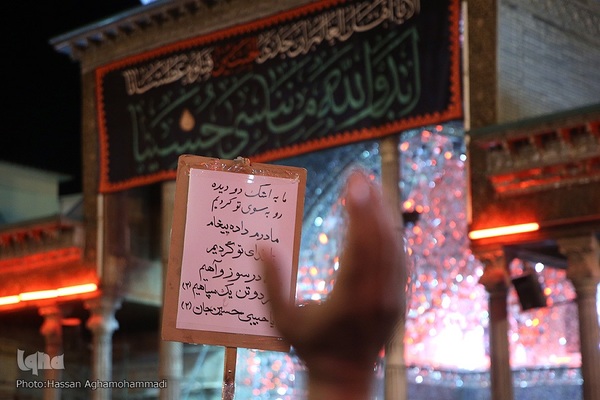 ابد والله ما ننسی حسینا
ما به اشک دو دیده
رو به سوی تو کردیم
مادرم داده پیغام
تو گردیم
در سوز و آهیم
دو تن یک سپاهیم (۲)
حبیبی حسین جان (۲)
iqna
Photo:Hassan Aghamohammadi